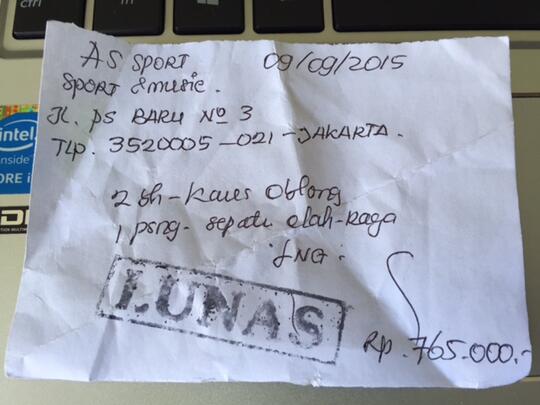 AS SPORT 09/09/2015
SPORT & music.
JL. PS BARU No 3
TLp. 3520005-021-JAKARTA.
2 bh-Kaus Oblong
1 psng- sepatu olah-raga
LUNAS
Rp. 765.000.-
intel
inside
CORE i
ctrl
fn
alt